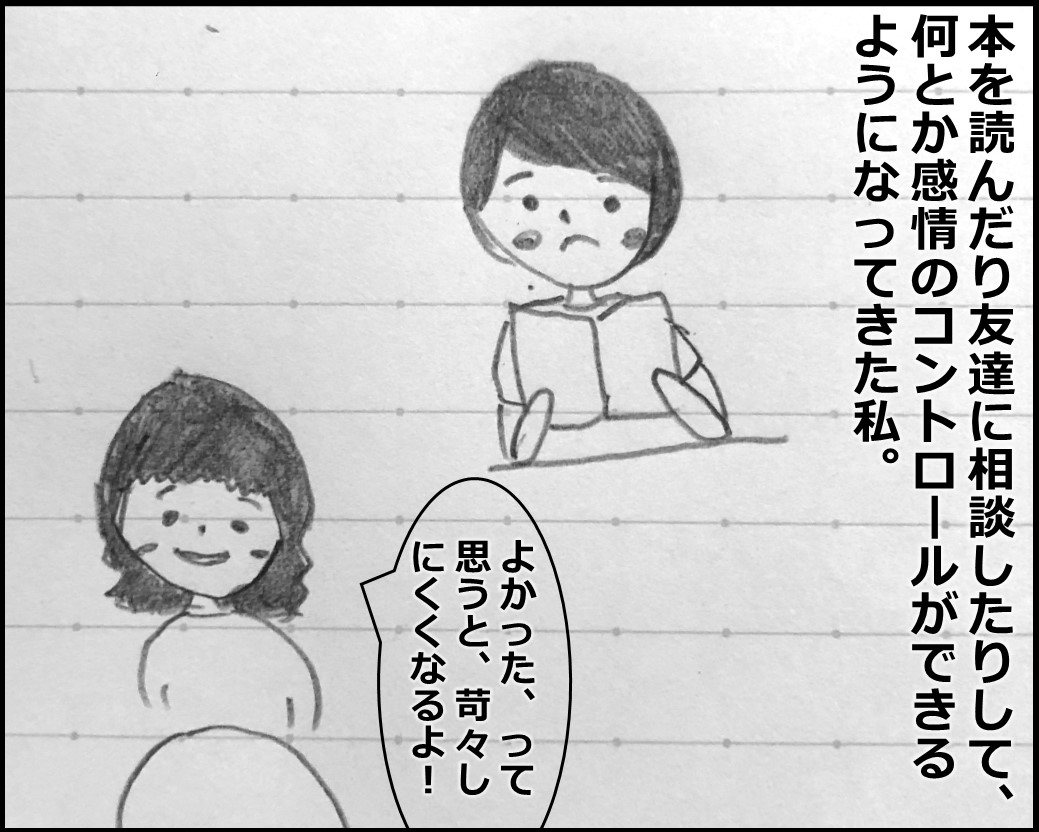 本を読んだり友達に相談したりして、
何とか感情のコントロールができる
ようになってきた私。
よかった、って
思うと、苛々し
にくくなるよ！